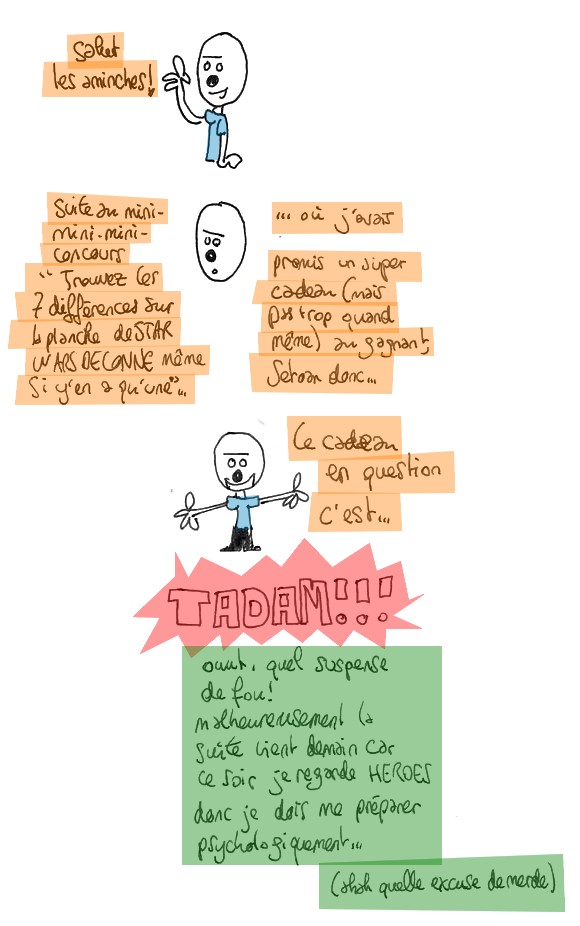 Salut
les aminches!
Suite au mini-
mini-mini-
concours
"Trouvez les
7 différences sur
la planche de STAR
WARS DECONNE même
si y'en a qu'une"...
... où j'avais
promis un super
cadeau (mais
pas trop quand
même) au gagnant,
Setoan donc...
Le cadeau
en question
c'est...
TADAM!!!
ouut, quel suspense
de fou!
malheureusement la
suite vient demain car
ce soir je regarde HEROES
donc je dois me préparer
psychologiquement...
(ahah quelle excuse de merde)